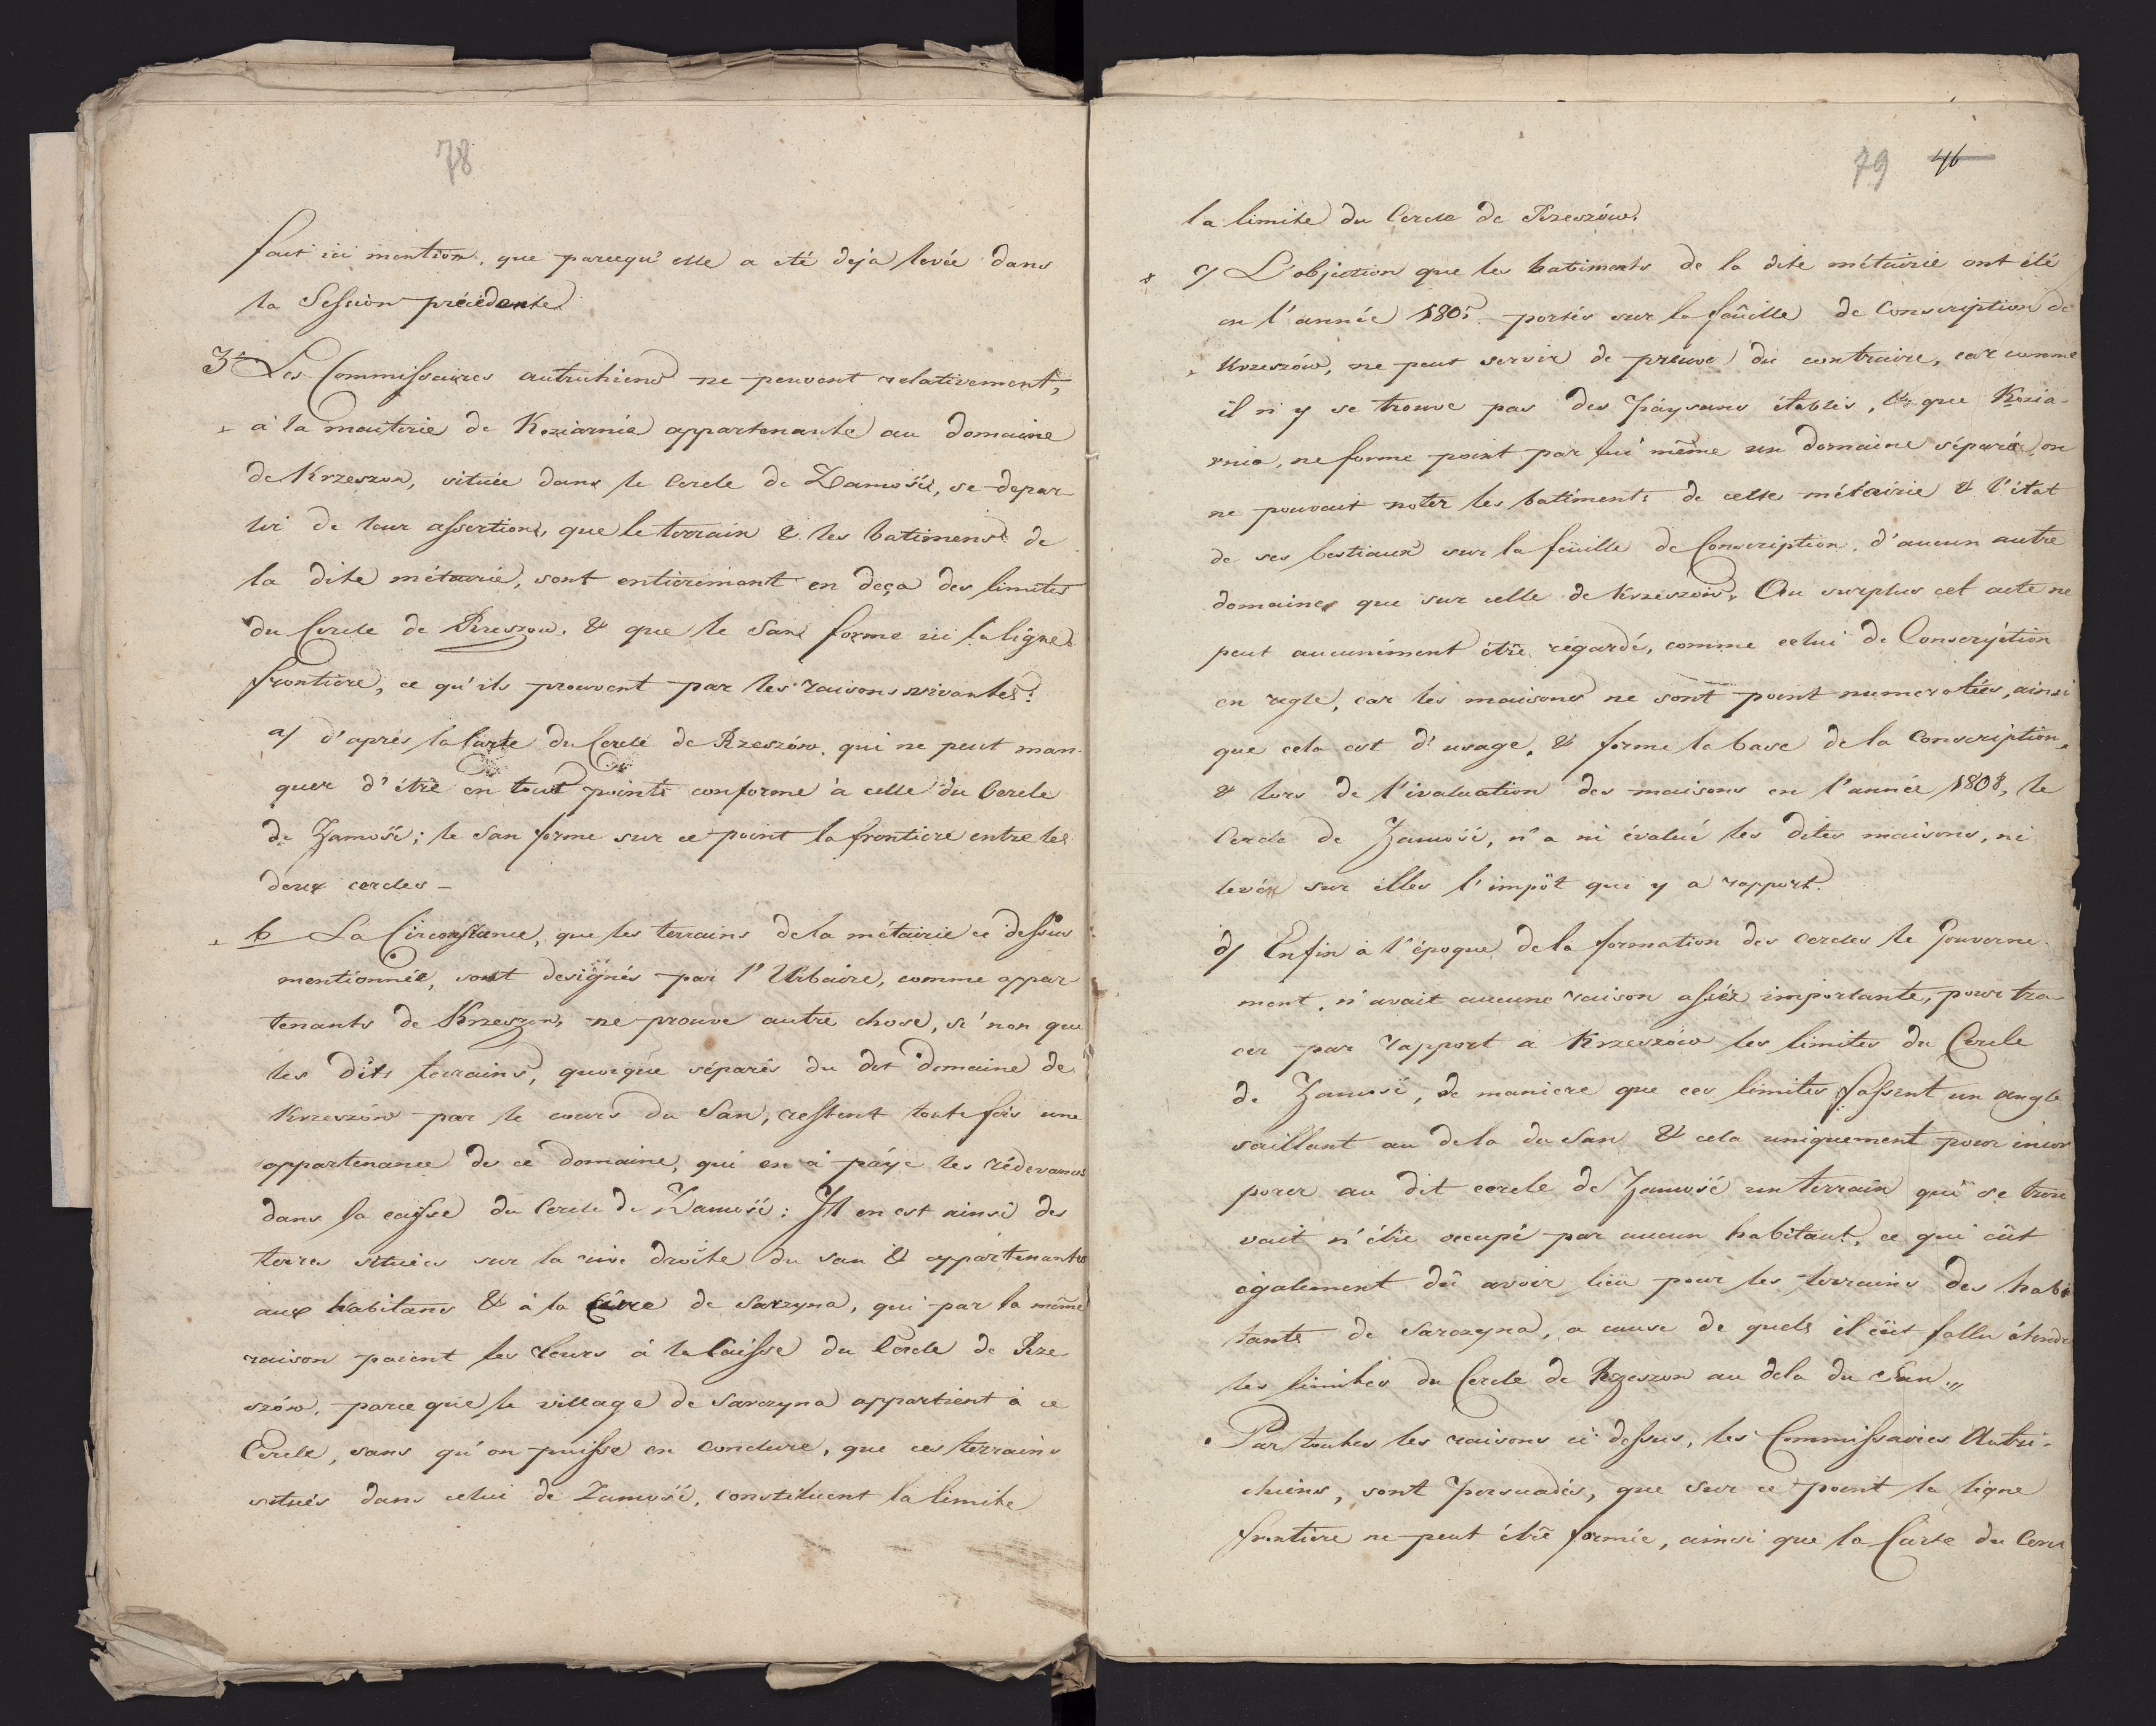 78
fait ici mention, que parcequ'elle a été deja levée dans
la Session précédente.
3° Les Commissaires autrichiens ne peuvent relativement,
à la maiterie de Koziarnia appartenante au domaine
de Krzeszow, située dans le Cercle de Zamość, se depar-
tir de leur assertion, que le terrain & les batimens de
la dite métairie, sont entierement en deça des limites
du Cercle de Rzeszow, & que le San forme ici la ligne
frontiere, ce qu'ils prouvent par les raisons suivantes:
a/ d'aprés la Carte du Cercle de Rzeszów, qui ne peut man-
quer d'être en tout points conforme à celle du Cercle
de Zamość; le San forme sur ce point la frontiere entre les
deux cercles –
b La Circonstance, que les terrains de la métairie ci dessus
mentionnée, sont designés par l'Urbaire, comme appar
tenants de Krzeszow, ne prouve autre chose, si non que
les dits terrains, quoique séparés du dit domaine de
Krzeszów par le cours du San, restent toute fois une
appartenance de ce domaine, qui en à páye les rédevances
dans la caisse du Cercle de Zamość: Il en est ainsi des
terres situées sur la rive droite du san & appartenants
aux habitans & à la Cûre de Sarzyna, qui par la même
raison paient les leurs à la Caisse du Cercle de Rze
szów, parce que le village de Sarzyna appartient à ce
Cercle, sans qu'on puisse en conclure, que ces terrains
situés dans celui de Zamość, constituent la limite
79 46
la limite du Cercle de Rzeszów.
c/ L'objection que les batiments de la dite métairie ont été
en l'année 1805 portés sur la feuille de Conscription de
Krzeszów, ne peut servir de preuve du contraire, car comme
il n'y se trouve pas des páysans établis, & que Kozia-
rnia, ne forme point par lui même un domaine séparé, on
ne pouvait noter les batiments de cette métairie & l'état
de ses bestiaux sur la feuille de Conscription, d'aucun autre
domaine que sur celle de Krzeszow, Au surplus cet acte ne
peut aucunément être régardé, comme celui de Conscription
en regle, car les maisons ne sont point numerotées, ainsi
que cela est d'usage, & forme la base de la Conscription,
& lors de l'évaluation des maisons en l'année 1808, le
Cercle de Zamość, n'a ni évalué les dites maisons, ni
levé sur elles l'impôt qui y a rapport.
d/ Enfin à l'époque de la formation des cercles le Gouverne-
ment, n'avait aucune raison assez importante, pour tra-
cer par rapport à Krzeszów les limites du Cercle
de Zamość, de maniere que ces limites fassent un angle
saillant au dela du San & cela uniquement pour incor
porer au dit cercle de Zamość un terrain qui se trou
vait n'être occupé par aucun habitant, ce qui eût
également dû avoir lieu pour les terrains des habi
tants de Sarzyna, a cause de quels il eût fallu étendre
les limites du Cercle de Rzeszow au dela du San.
Par toutes les raisons ci dessus, les Commissaires Autri-
chiens, sont persuadés, que sur ce point la ligne
frontiere ne peut être formée, ainsi que la Carte du Cercle